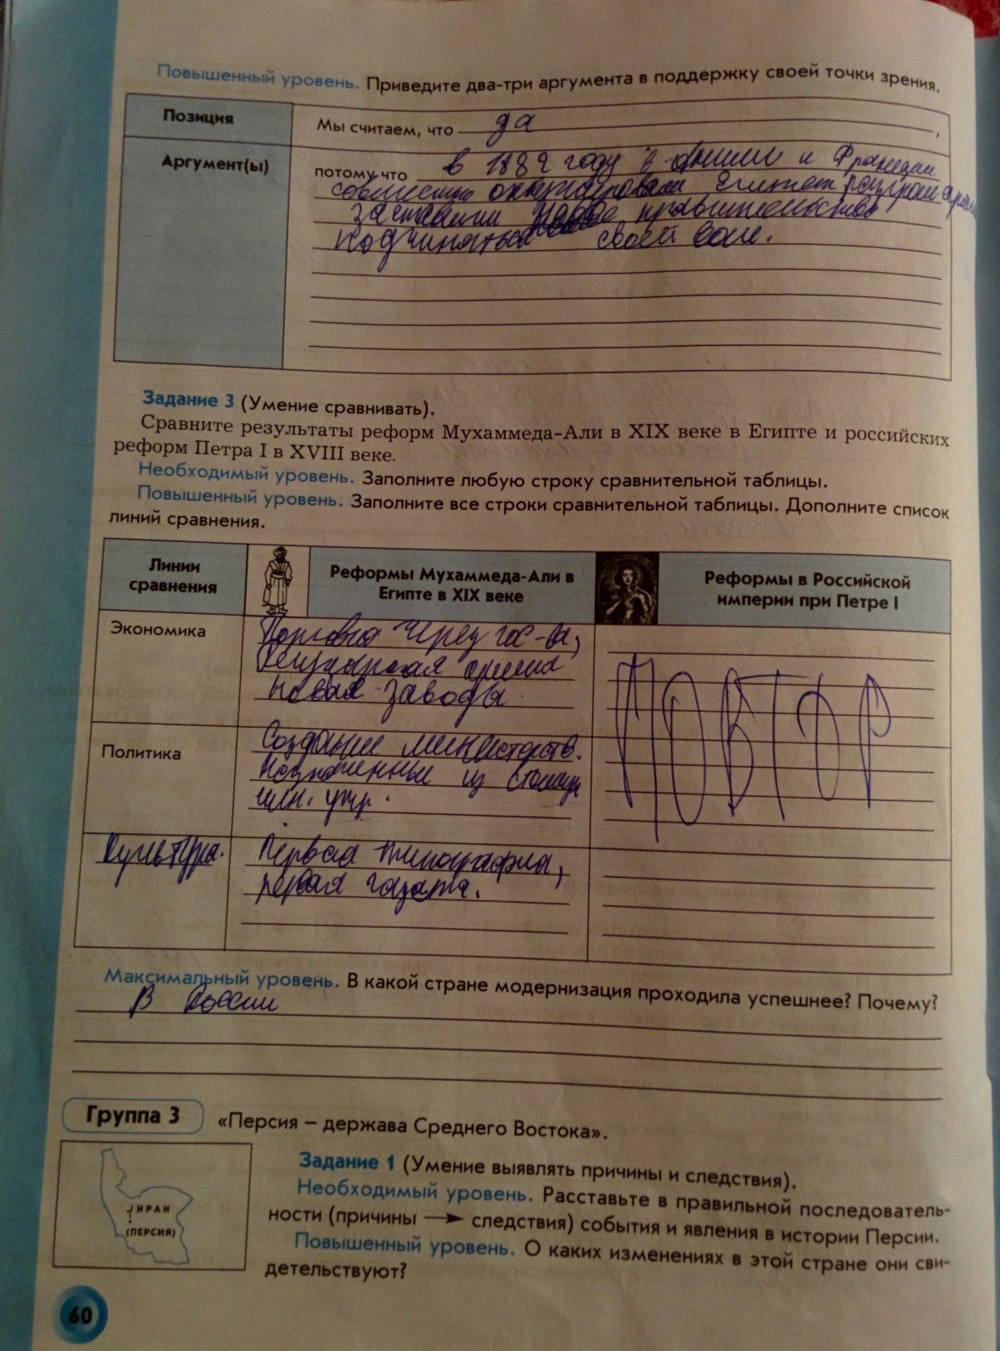 Повышенный уровень. Приведите два-три аргумента в поддержку своей точки зрения.
Позиция
Мы считаем, что да ,
Аргумент(ы)
потому что в 1882 году и Франции
совместно оккупировали Египет
заставили правительство
подчиняться своей воле.
Задание 3 (Умение сравнивать).
Сравните результаты реформ Мухаммеда-Али в XIX веке в Египте и российских
реформ Петра I в XVIII веке.
Необходимый уровень. Заполните любую строку сравнительной таблицы.
Повышенный уровень. Заполните все строки сравнительной таблицы. Дополните список
линий сравнения.
Линии
сравнения
Реформы Мухаммеда-Али в
Египте в XIX веке
Реформы в Российской
империи при Петре I
Экономика
Торговля через гос-ва,
Регулярная армия
новая заводы.
Политика
Создание министерств.
Назначенные из столицы
чин. упр.
ПОВТОР
Культура.
Первая типография,
первая газета.
Максимальный уровень. В какой стране модернизация проходила успешнее? Почему?
В России
Группа 3
«Персия – держава Среднего Востока».
Задание 1 (Умение выявлять причины и следствия).
Необходимый уровень. Расставьте в правильной последователь-
ности (причины → следствия) события и явления в истории Персии.
Повышенный уровень. О каких изменениях в этой стране они сви-
детельствуют?
ИРАН
(ПЕРСИЯ)
60